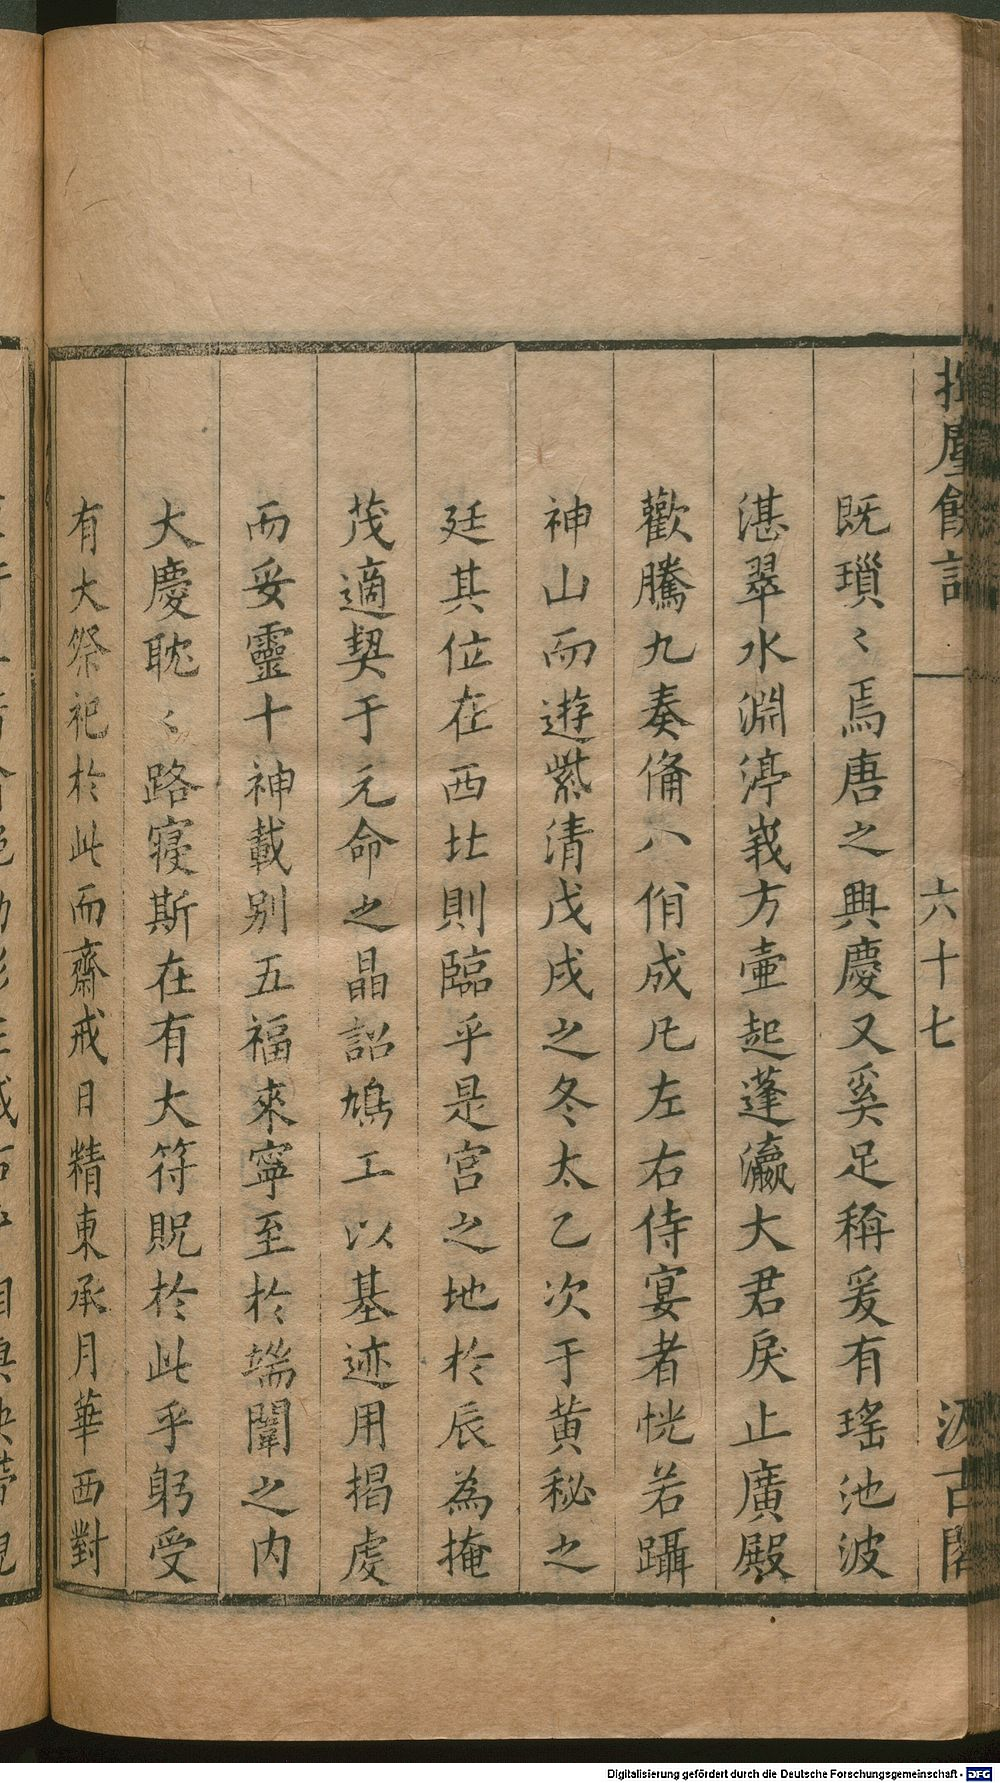 揮麈餘話
六十七
汲古閣
既瑣〻焉唐之興慶又奚足稱爰有瑤池波
湛翠水淵渟峩方壷起蓬瀛大君戾止廣殿
歡騰九奏僃八佾成凡左右侍宴者恍若躡
神山而遊紫清戊戌之冬太乙次于黃秘之
廷其位在西北則臨乎是宮之地於辰為掩
茂適契于元命之晶詔鳩工以基迹用揭虔
而妥靈十神載别五福來寧至於端闈之内
大慶耽〻路寢斯在有大符貺於此乎躬受
有大祭祀於此而齋戒日精東承月華西對
Digitalisierung gefördert durch die Deutsche Forschungsgemeinschaft - DFG